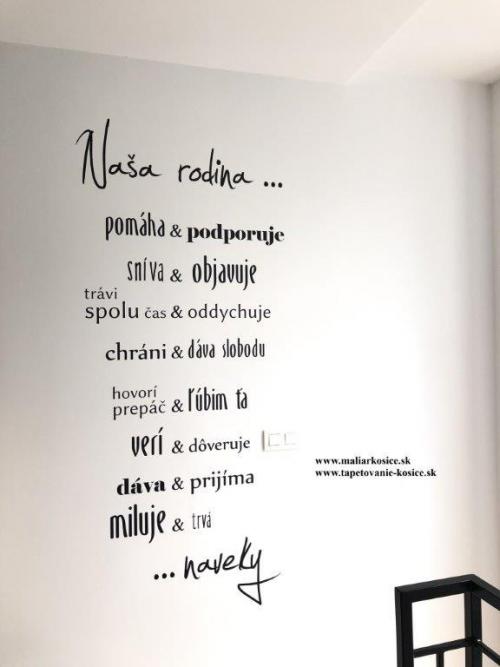 Naša rodina ...
pomáha & podporuje
sníva & objavuje
trávi
spolu čas & oddychuje
chráni & dáva slobodu
hovorí
prepáč & ľúbim ťa
verí & dôveruje
www.maliarkosice.sk
www.tapetovanie-kosice.sk
dáva & prijíma
miluje & trvá
... naveky